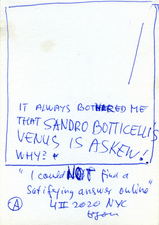 IT ALWAYS BOTHERED ME
THAT SANDRO BOTTICELLI'S
VENUS IS ASKEW!
WHY?
"I could NOT find a
satifying answer online"
A 4 III 2020 NYC